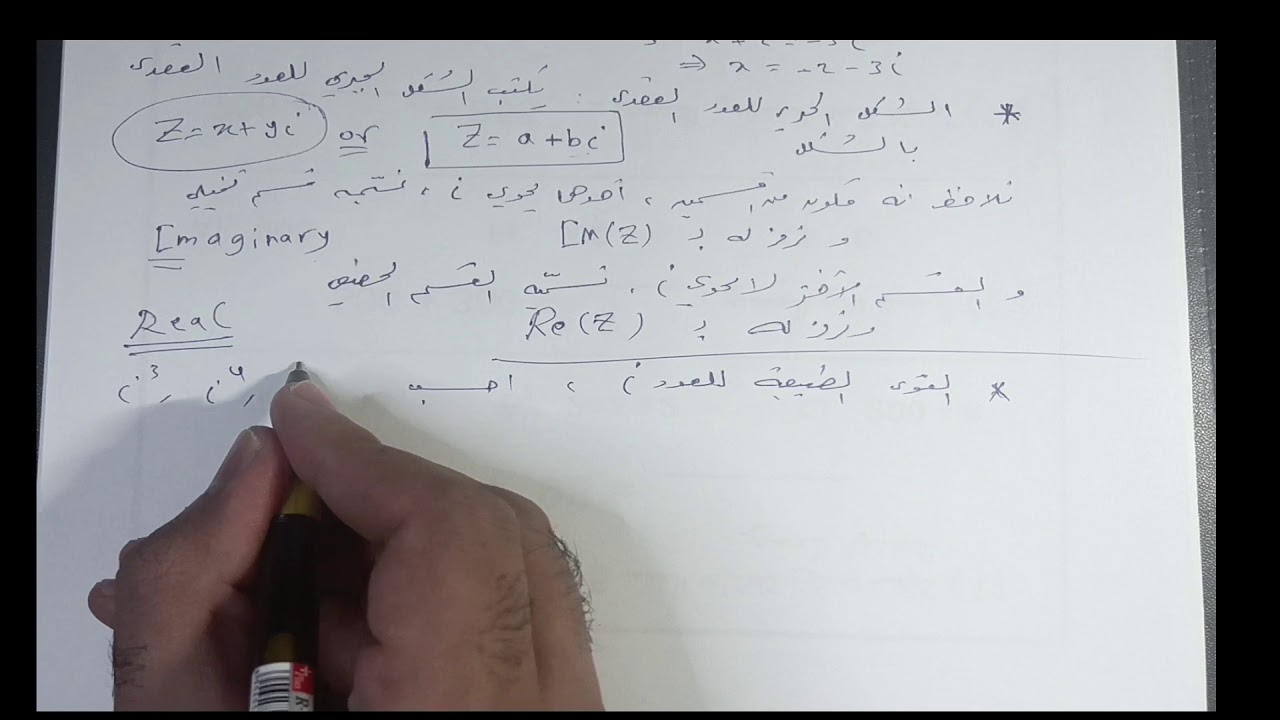 ⇒ x = -2 - 3i
* الشكل الجبري للعدد العقدي : يكتب الشكل الجبري للعدد العقدي
بالشكل Z = a + bi or Z = x + yi
نلاحظ انه مكون من قسمين ، أحدهما يحوي i ، نسميه قسم تخيلي
و نرمز له بـ Im(Z) Imaginary
و القسم الآخر لا يحوي i ، نسميه القسم الحقيقي
ونرمز له بـ Re(Z) Real
* القوى الطبيعية للعدد i ، احسب i³ , i⁴ ,